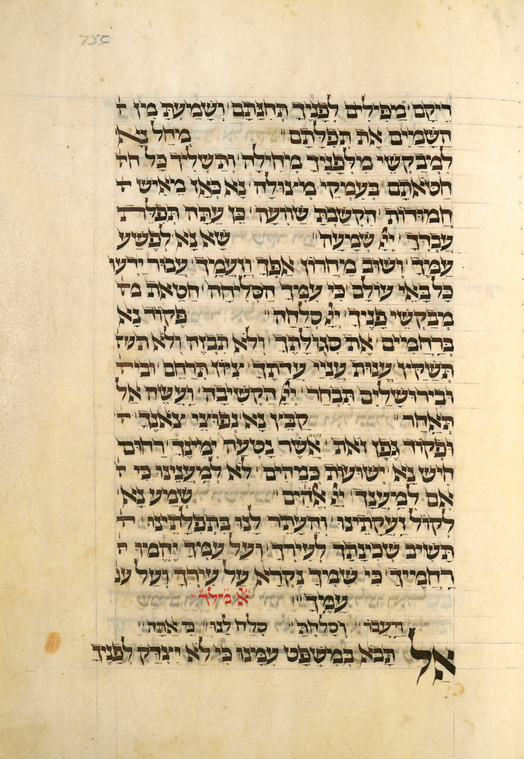 דיקם מפילים לפניך תחנתם ושמעת מין ה
השמים את תפלתם׃ מחל נא
למבקשי מלפניך מחילה ותשליך כל חח
חטאתם בעמיקי מיצולה נא כאז מאיש ח
חמודות הקשבת שוועד כן עתה תפלת
עבדך שמעה׃ שא נא לפשע
עמך ושוב מיחרון אפך וזעמיך עבור ידעו
כל באי עולם כי עמך הסליחה חטאת מח
מבקשי פניך סלחה׃ פקוד נא
ברחמים את סגולתך ולא תבזה ולא תשק
תשקיץ ענות עניי עדתך ציון תרחם וביר
ובירושלים תבחר הקשיבה ועשה אל
תאחר׃ קבץ נא נפוצי צאנך
ופקוד גפן זאת אשר נטעה ימינך רחום
חיש נא ישועות במהים לא למענינו כי א
אם למענך אדהים׃ שמע נא
לקול זעקתינו והעתר לנו בתפלתינו
תשיב שכינתך לעירך ועל עמך יהמו ר
רחמיך כי שמך נקרא על עירך ועל עמ
עמיך׃ א מילך׃
ויעבו׳ וסלחת׃ סלח לנו׃ כי אתה׃
אל תבא במשפט עמינו כי לא יינדק לפניך